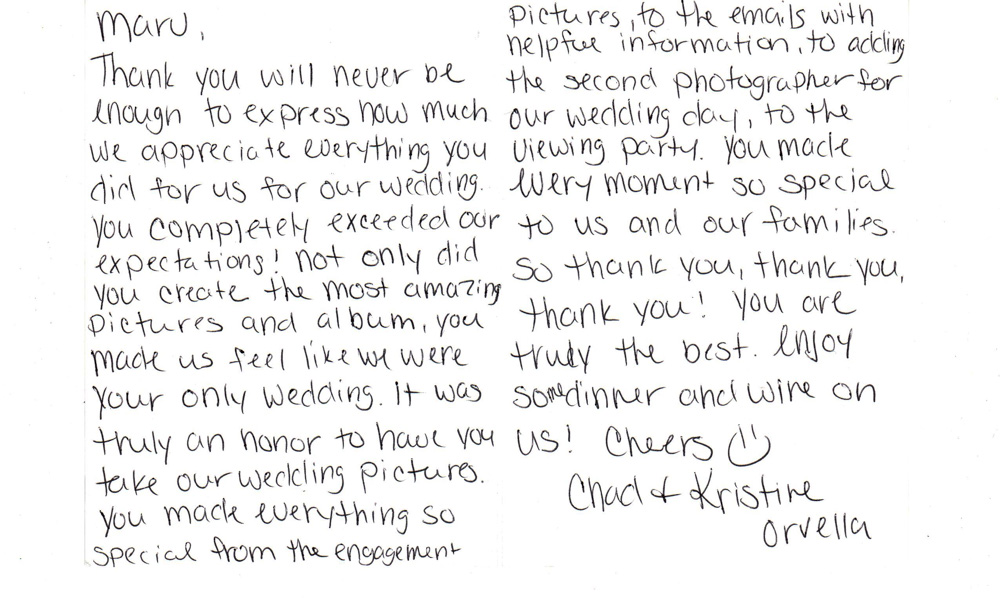 Maru,
Thank you will never be
enough to express how much
we appreciate everything you
did for us for our wedding.
you completely exceeded our
expectations! not only did
you create the most amazing
pictures and album, you
made us feel like we were
your only wedding. It was
truly an honor to have you
take our wedding pictures.
you made everything so
special from the engagement
pictures, to the emails with
helpful information, to adding
the second photographer for
our wedding day, to the
viewing party. you made
every moment so special
to us and our families.
So thank you, thank you,
thank you! You are
truly the best. Enjoy
some dinner and wine on
us! Cheers
Chad & Kristine
Orvella